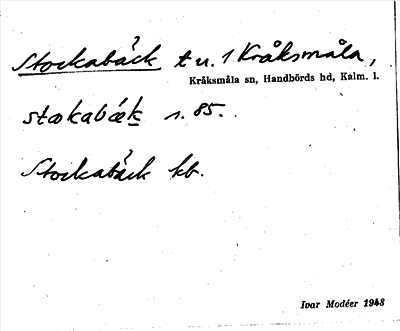 Stockabäck t u. 1 Kråksmåla,
Kråksmåla sn, Handbörds hd, Kalm. l.
stɷkabæk 1.85.
Stockabäck kb.
Ivar Modéer 1948